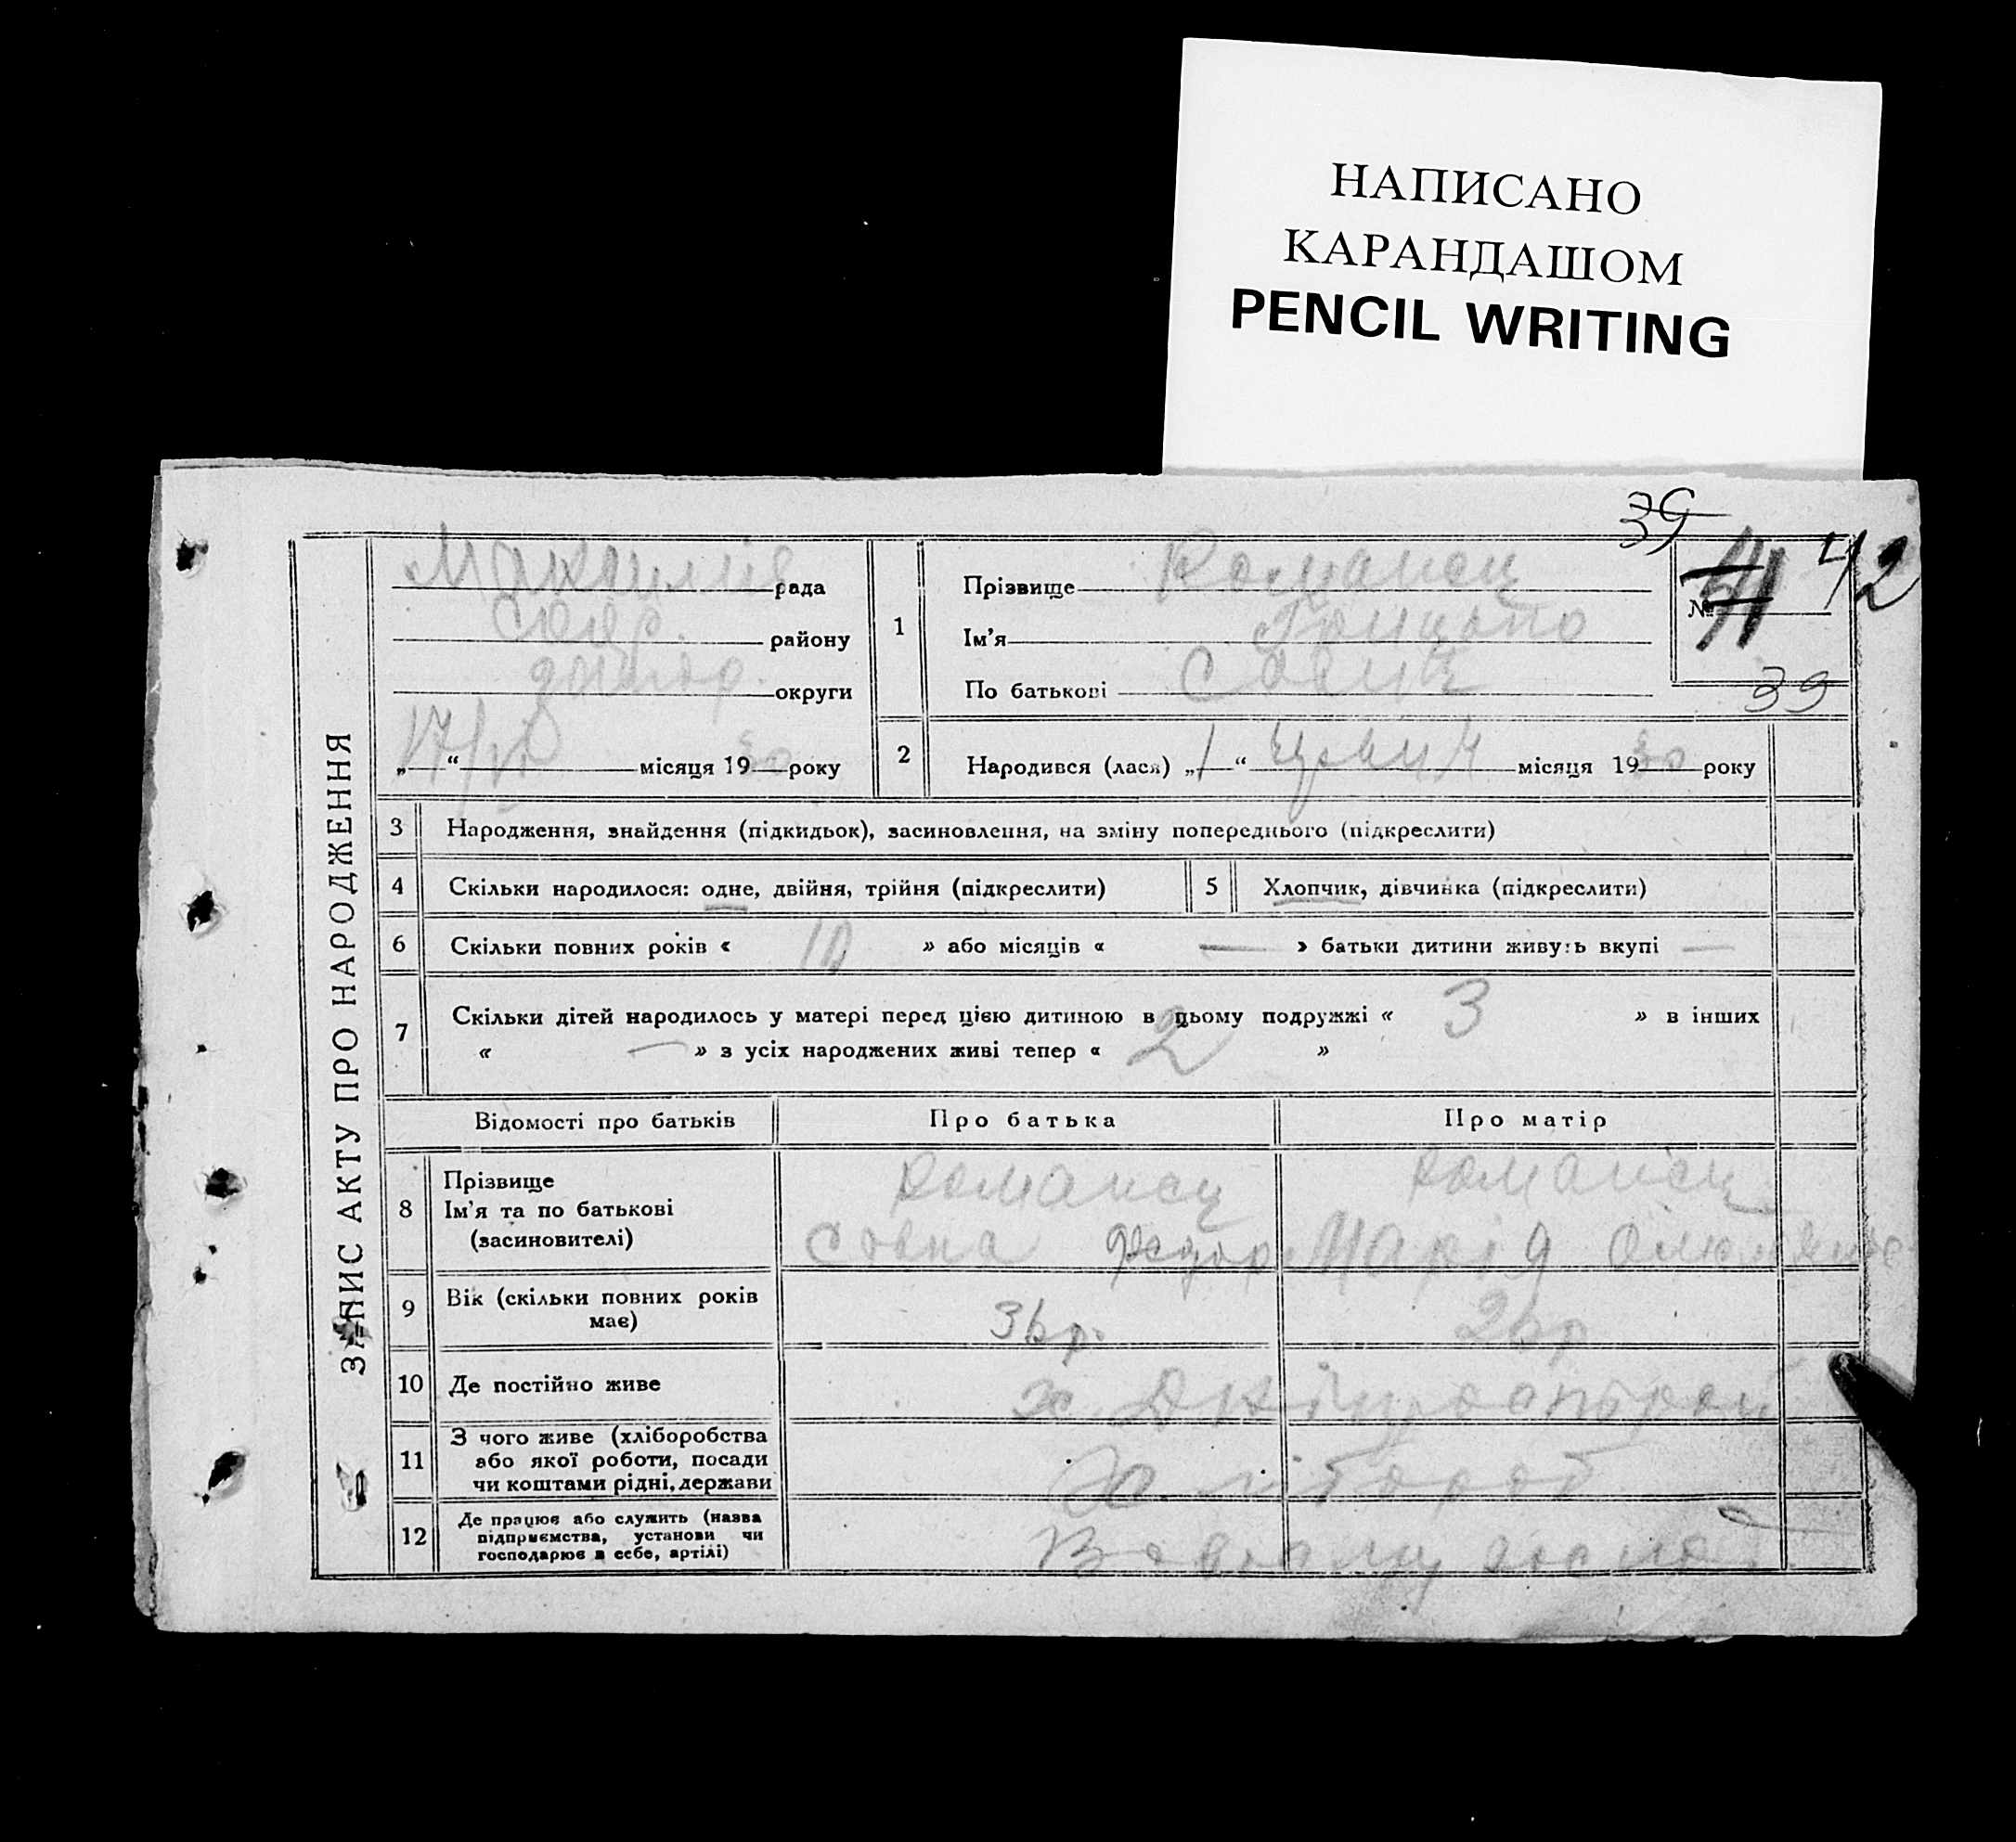 НАПИСАНО
КАРАНДАШОМ
PENCIL WRITING
39
41 42
№
39
ЗАПИС АКТУ ПРО НАРОДЖЕННЯ
рада
району
округи
17/VI місяця 1930 року
1
Прізвище Романец
Ім'я Грицько
По батькові
2
Народився (лася) „1“ місяця 1930 року
3 Народження, знайдення (підкидьок), засиновлення, на зміну попереднього (підкреслити)
4 Скільки народилося: одне, двійня, трійня (підкреслити)
5 Хлопчик, дівчинка (підкреслити)
6 Скільки повних років « 10 » або місяців « — » батьки дитини живуть вкупі —
7 Скільки дітей народилось у матері перед цією дитиною в цьому подружжі « 3 » в інших
« — » з усіх народжених живі тепер « 2 »
Відомості про батьків
Про батька
Про матір
8
Прізвище
Ім'я та по батькові
(засиновителі)
Романец
Савка Федор
Романец
Марія
9
Вік (скільки повних років
має)
36 р.
26 р
10 Де постійно живе
х. Дніпрострой
11
З чого живе (хліборобства
або якої роботи, посади
чи коштами рідні, держави
12
Де працює або служить (назва
підприємства, установи чи
господарює в себе, артілі)